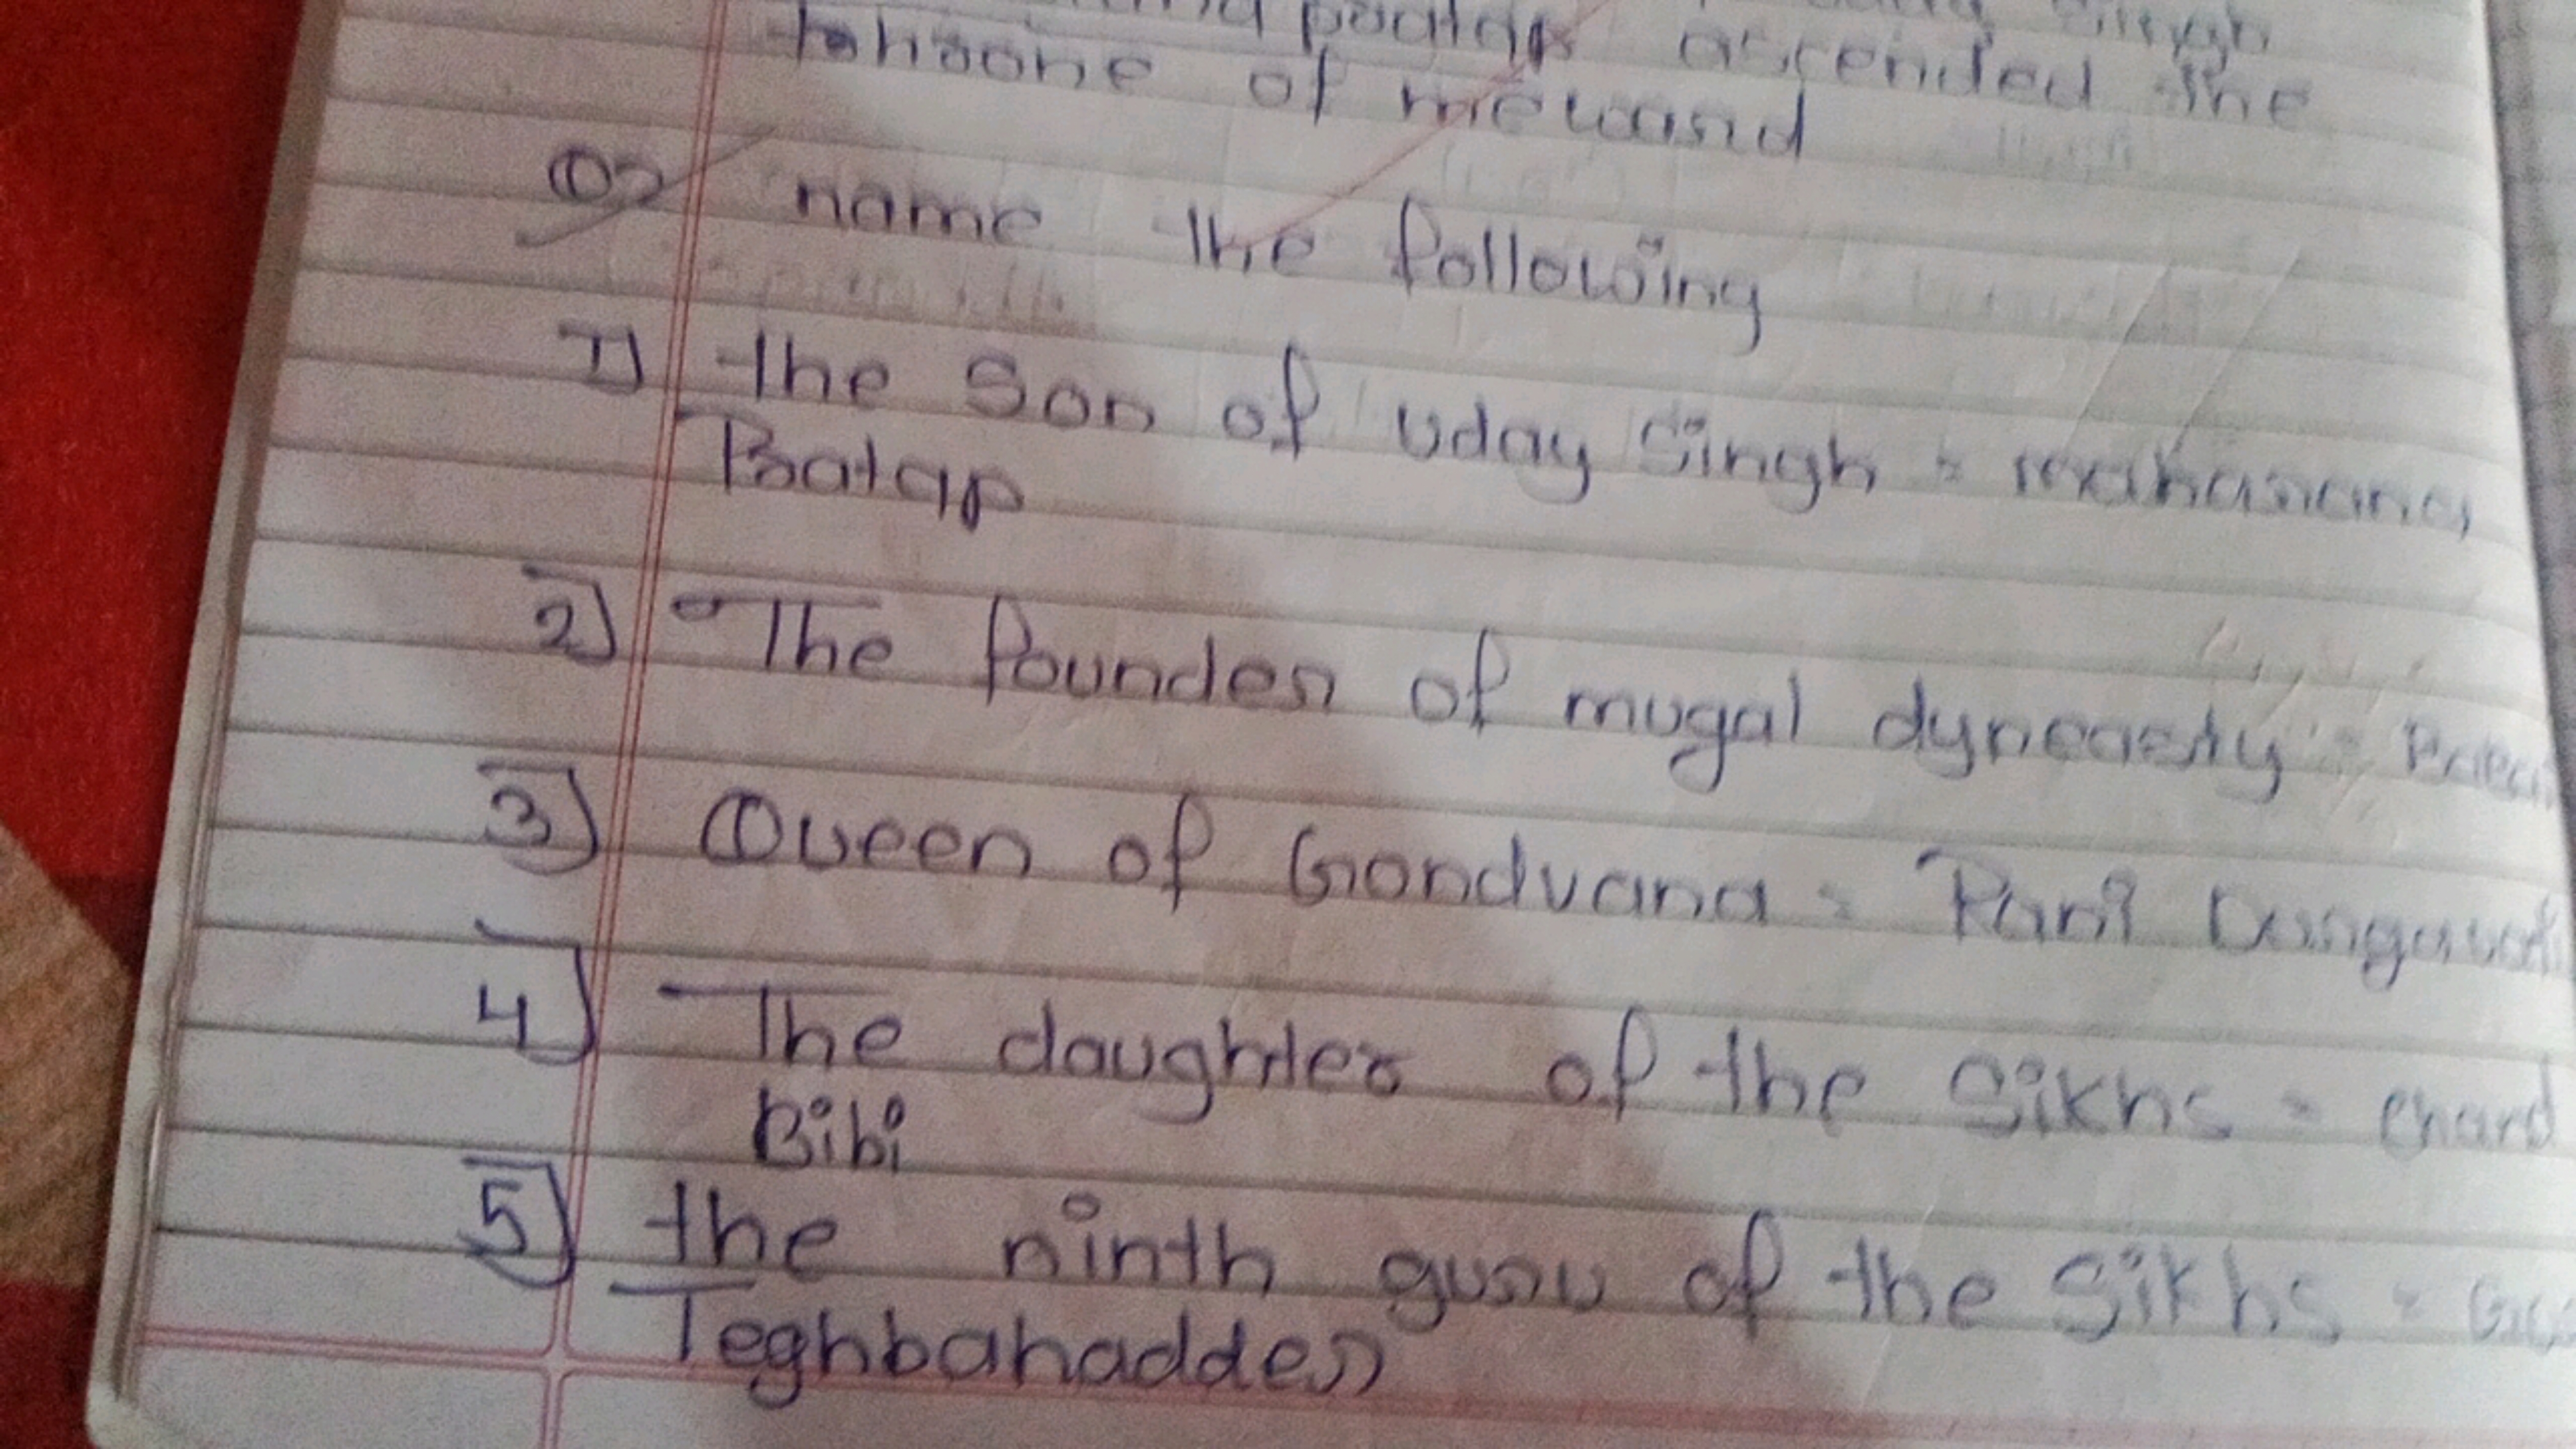 ascended the
of mewand
Q) name the following
1) the Son of uday Singh = maharana
Pratap
2) The founder of mugal dyneasty =
3) Queen of Gondvana = Rani Durgavati
4) The daughter of the Sikhs = chand
Bibi
5) the ninth guru of the Sikhs =
Teghbahadder